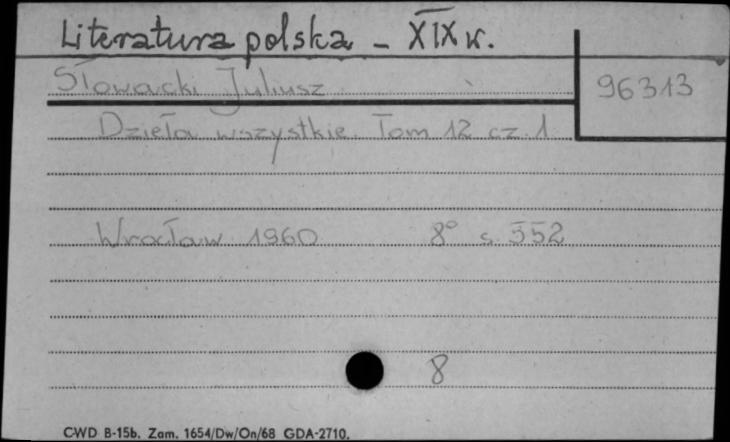 Literatura polska - XIX w.
Słowacki Juliusz
96313
Dzieła wszystkie. Tom 12 cz. 1
Wrocław 1960 8° s. 552
8
CWD B-15b. Zam. 1654/Dw/On/68 GDA-2710.